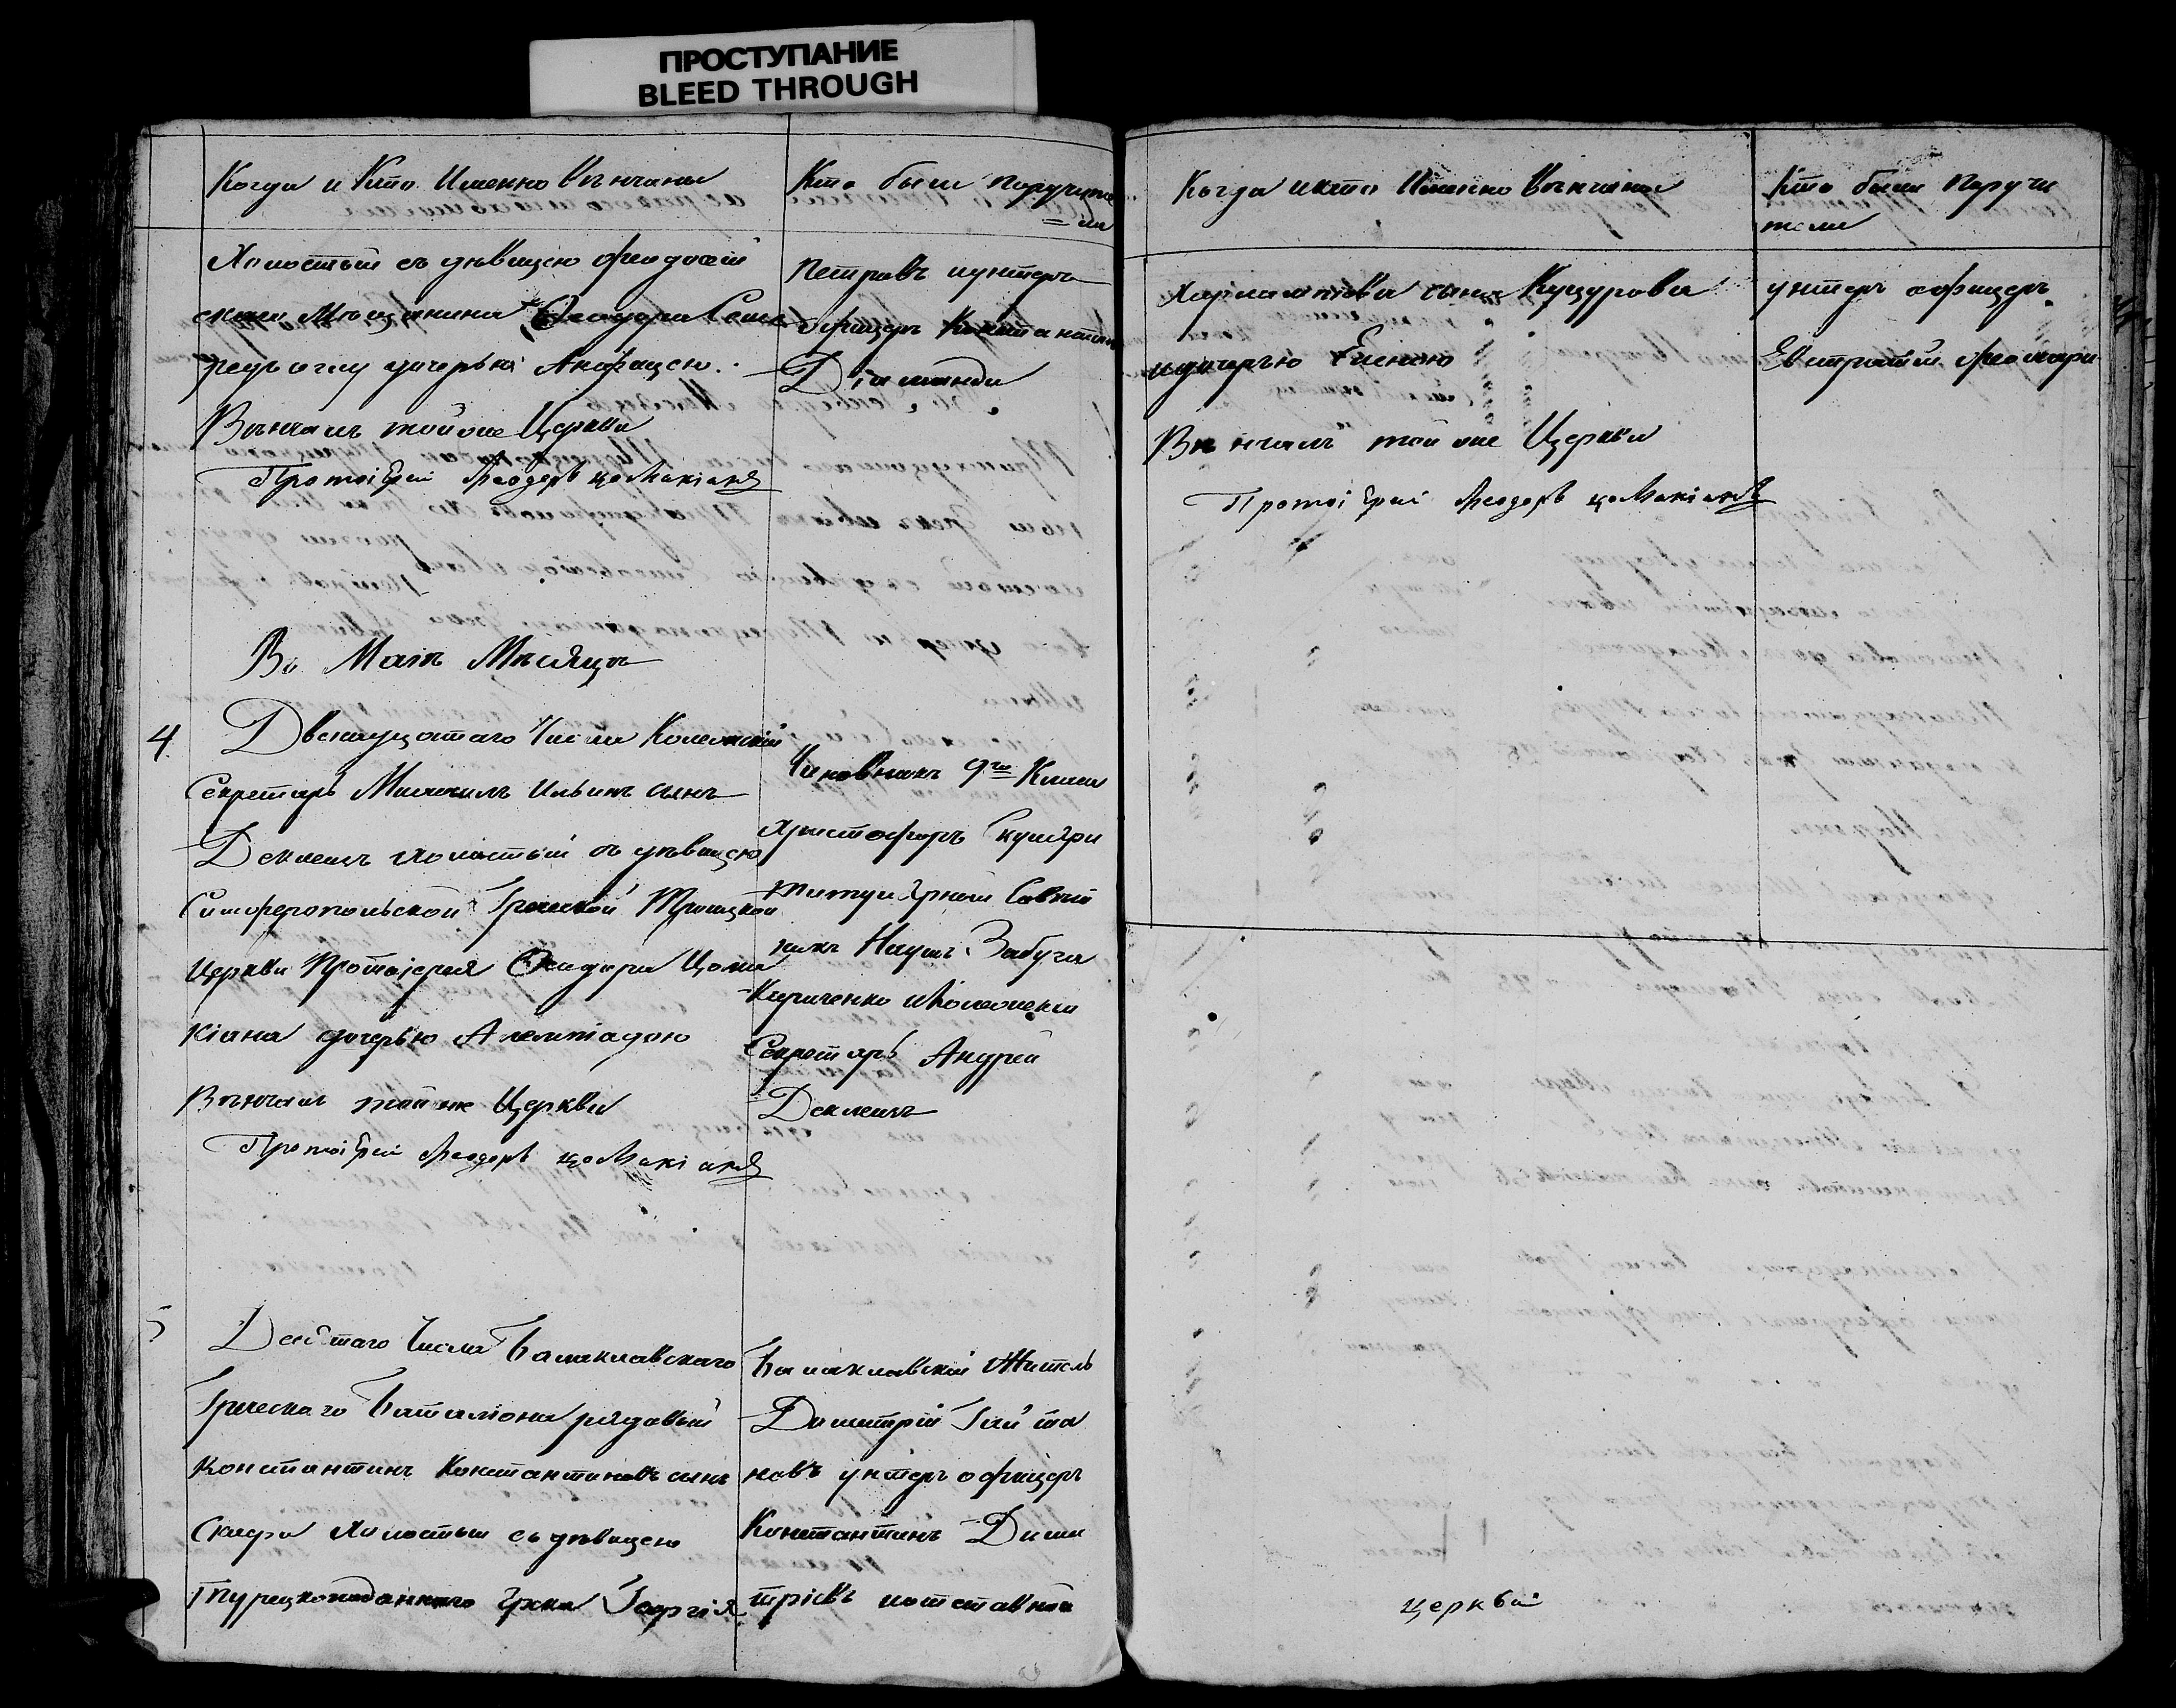 ПРОСТУПАНИЕ
BLEED THROUGH
Когда и Кто Именно Вѣнчаны
Кто были поручите
=ли
Холостый съ дѣвицею феодосій
Мѣщанина Ѳеодора
дочерью
Вѣнчалъ тойже Церкви
Протоіерей Феодоръ цоМакіанъ
Петровъ иунтеръ
офицеръ Константинъ
Діаманди
Въ Маіѣ Мѣсяцѣ
4
Двенадцатаго Числа Колежскій
Секретарь Михаилъ Ильинъ сынъ
Декленъ холостый съ дѣвицею
Симферопольской Греческой Троицкой
Церкви Протоіерея Ѳеодора Цома
кіана дочерью
Вѣнчалъ тойже Церкви
Протоіерей Феодоръ цоМакіанъ
Чиновникъ 9го Класа
Христофоръ
титулярный Совѣт
никъ Наумъ Забуга
Кириченко иКолежскій
Секретарь Андрей
Декленъ
5
Числа Балаклавскаго
Греческаго Баталіона рядовый
Константинъ Константиновъ сынъ
холостый съ дѣвицею
Турецкоподаннаго Грека Георгія
Балаклавскій Житель
Димитрій Гайта
новъ унтеръ офицеръ
Константинъ Дими
тріевъ иотставной
Когда икто Именно Вѣнчаны
Кто были Поручи
тели
Харлампіева сына Куцурова
идочерью Еленою
Вѣнчалъ той же Церкви
Протоіерей Феодоръ цоМакіанъ
унтеръ офицеръ
Евстратій
церквй